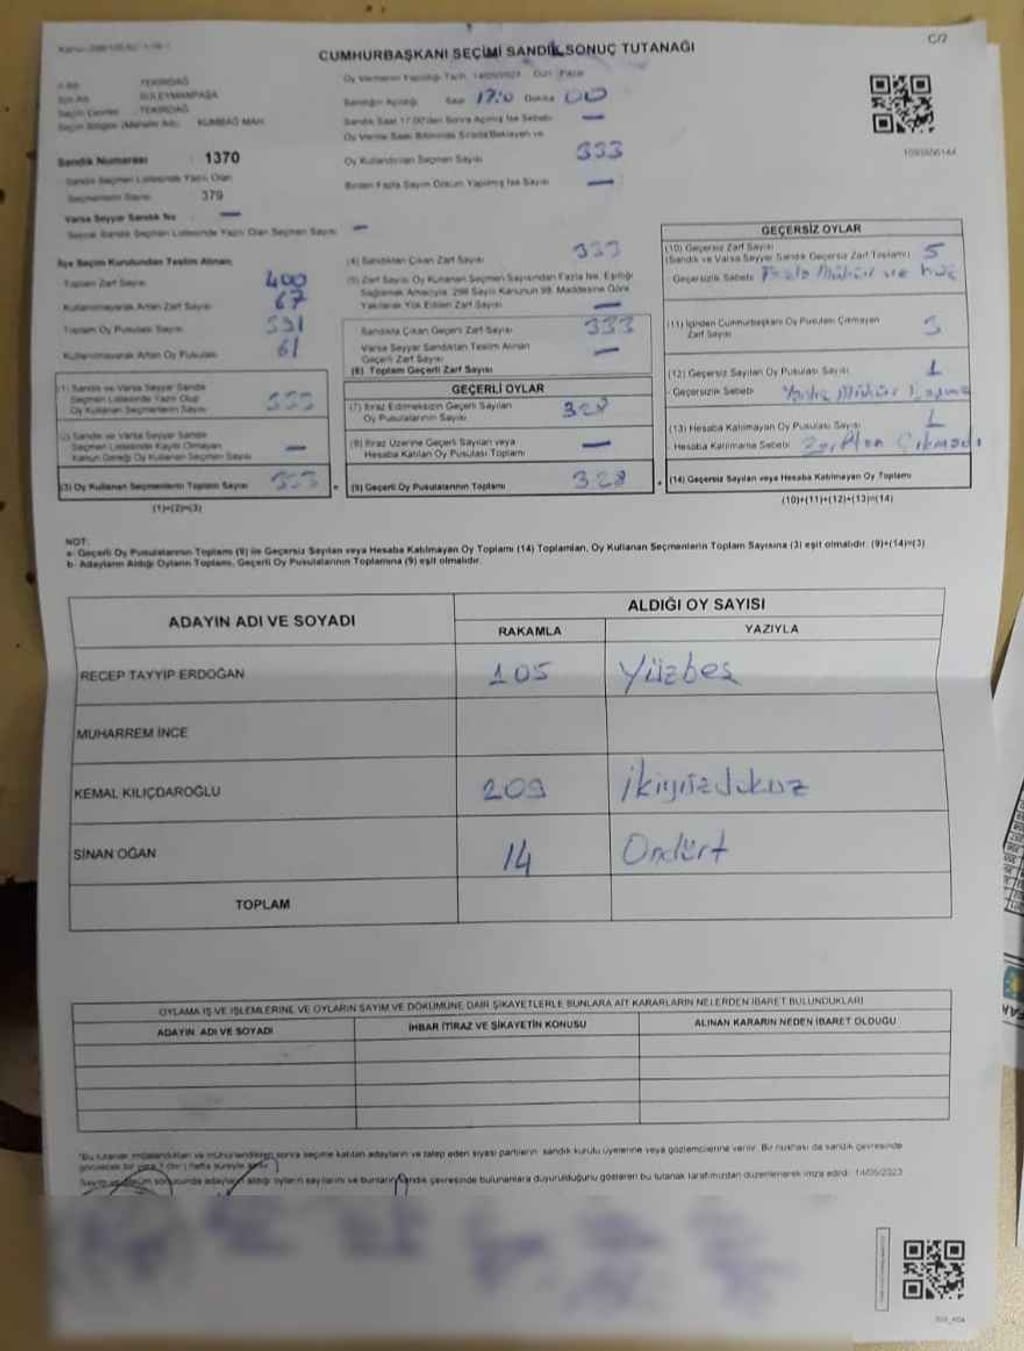 C/2
CUMHURBAŞKANI SEÇİMİ SANDIK SONUÇ TUTANAĞI
TEKİRDAĞ
SÜLEYMANPAŞA
TEKİRDAĞ
KUMBAĞ MAH.
Sandık Numarası 1370
Sandık Seçmen Listesinde Yazılı Olan
Seçmenlerin Sayısı 379
Varsa Seyyar Sandık No —
Seyyar Sandık Seçmen Listesinde Yazılı Olan Seçmen Sayısı —
Oy Vermenin Yapıldığı Tarih 14/05/2023 Gün Pazar
Sandığın Açıldığı Saat 17:0 Dakika 00
Sandık Saat 17.00'den Sonra Açılmış İse Sebebi —
Oy Verme Saati Bitiminde Sırada Bekleyen ve
Oy Kullandırılan Seçmen Sayısı 333
Birden Fazla Sayım Döküm Yapılmış İse Sayısı —
İlçe Seçim Kurulundan Teslim Alınan
Toplam Zarf Sayısı 400
Kullanılmayarak Artan Zarf Sayısı 67
Toplam Oy Pusulası Sayısı
Kullanılmayarak Artan Oy Pusulası 61
(1) Sandık ve Varsa Seyyar Sandık
Seçmen Listesinde Yazılı Olup
Oy Kullanan Seçmenlerin Sayısı 333
(2) Sandık ve Varsa Seyyar Sandık
Seçmen Listesinde Kayıtlı Olmayan
Kanun Gereği Oy Kullanan Seçmen Sayısı —
(3) Oy Kullanan Seçmenlerin Toplam Sayısı 333
(1)+(2)=(3)
(4) Sandıktan Çıkan Zarf Sayısı 333
(5) Zarf Sayısı, Oy Kullanan Seçmen Sayısından Fazla İse, Eşitliği
Sağlamak Amacıyla, 298 Sayılı Kanunun 98. Maddesine Göre
Yakılarak Yok Edilen Zarf Sayısı —
Sandıkta Çıkan Geçerli Zarf Sayısı 333
Varsa Seyyar Sandıktan Teslim Alınan
Geçerli Zarf Sayısı —
(6) Toplam Geçerli Zarf Sayısı
GEÇERLİ OYLAR
(7) İtiraz Edilmeksizin Geçerli Sayılan
Oy Pusulalarının Sayısı 328
(8) İtiraz Üzerine Geçerli Sayılan veya
Hesaba Katılan Oy Pusulası Toplamı —
(9) Geçerli Oy Pusulalarının Toplamı 328
GEÇERSİZ OYLAR
(10) Geçersiz Zarf Sayısı
(Sandık ve Varsa Seyyar Sandık Geçersiz Zarf Toplamı) 5
Geçersizlik Sebebi Fazla Mühür ve
(11) İçinden Cumhurbaşkanı Oy Pusulası Çıkmayan
Zarf Sayısı
(12) Geçersiz Sayılan Oy Pusulası Sayısı 1
Geçersizlik Sebebi Mühür
(13) Hesaba Katılmayan Oy Pusulası Sayısı 1
Hesaba Katılmama Sebebi Zarftan Çıkmadı
(14) Geçersiz Sayılan veya Hesaba Katılmayan Oy Toplamı
(10)+(11)+(12)+(13)=(14)
NOT:
a- Geçerli Oy Pusulalarının Toplamı (9) ile Geçersiz Sayılan veya Hesaba Katılmayan Oy Toplamı (14) Toplamları, Oy Kullanan Seçmenlerin Toplam Sayısına (3) eşit olmalıdır. (9)+(14)=(3)
b- Adayların Aldığı Oyların Toplamı, Geçerli Oy Pusulalarının Toplamına (9) eşit olmalıdır.
ADAYIN ADI VE SOYADI
ALDIĞI OY SAYISI
RAKAMLA YAZIYLA
RECEP TAYYİP ERDOĞAN 105 Yüzbeş
MUHARREM İNCE
KEMAL KILIÇDAROĞLU 209 ikiyüzdokuz
SİNAN OĞAN 14 Ondört
TOPLAM
OYLAMA İŞ VE İŞLEMLERİNE VE OYLARIN SAYIM VE DÖKÜMÜNE DAİR ŞİKAYETLERLE BUNLARA AİT KARARLARIN NELERDEN İBARET BULUNDUKLARI
ADAYIN ADI VE SOYADI İHBAR İTİRAZ VE ŞİKAYETİN KONUSU ALINAN KARARIN NEDEN İBARET OLDUĞU
"Bu tutanak imzalandıktan ve mühürlendikten sonra seçime katılan adayların ve talep eden siyasi partilerin sandık kurulu üyelerine veya gözlemcilerine verilir. Bir nüshası da sandık çevresinde
Sayım ve döküm sonucunda adayların aldığı oyların sayılarını ve bunların sandık çevresinde bulunanlara duyurulduğunu gösteren bu tutanak tarafımızdan düzenlenerek imza edildi. 14/05/2023